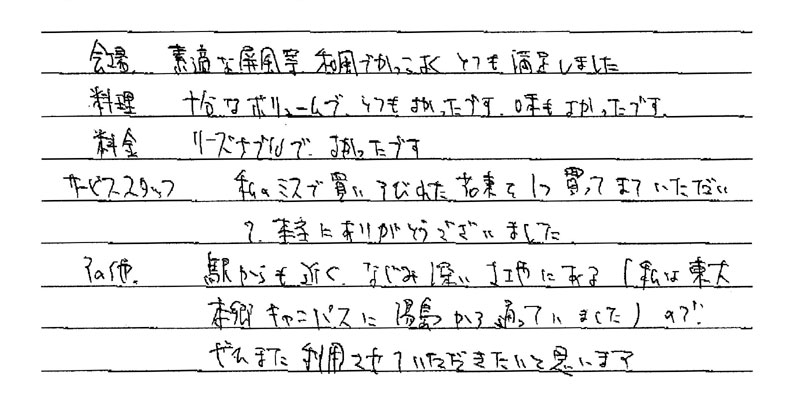 会場 素適な屏風等 和風でかっこよく とても満足しました
料理 十分なボリュームで、とてもよかったです。味もよかったです。
料金 リーズナブルで、よかったです
サービススタッフ 私のミスで買いそびれた花束を1つ買ってきていただい
て、本当にありがとうございました。
その他. 駅からも近く、なじみ深い土地にある（私は東大
本郷キャンパスに湯島から通っていました）ので、
ぜひまた利用させていただきたいと思います